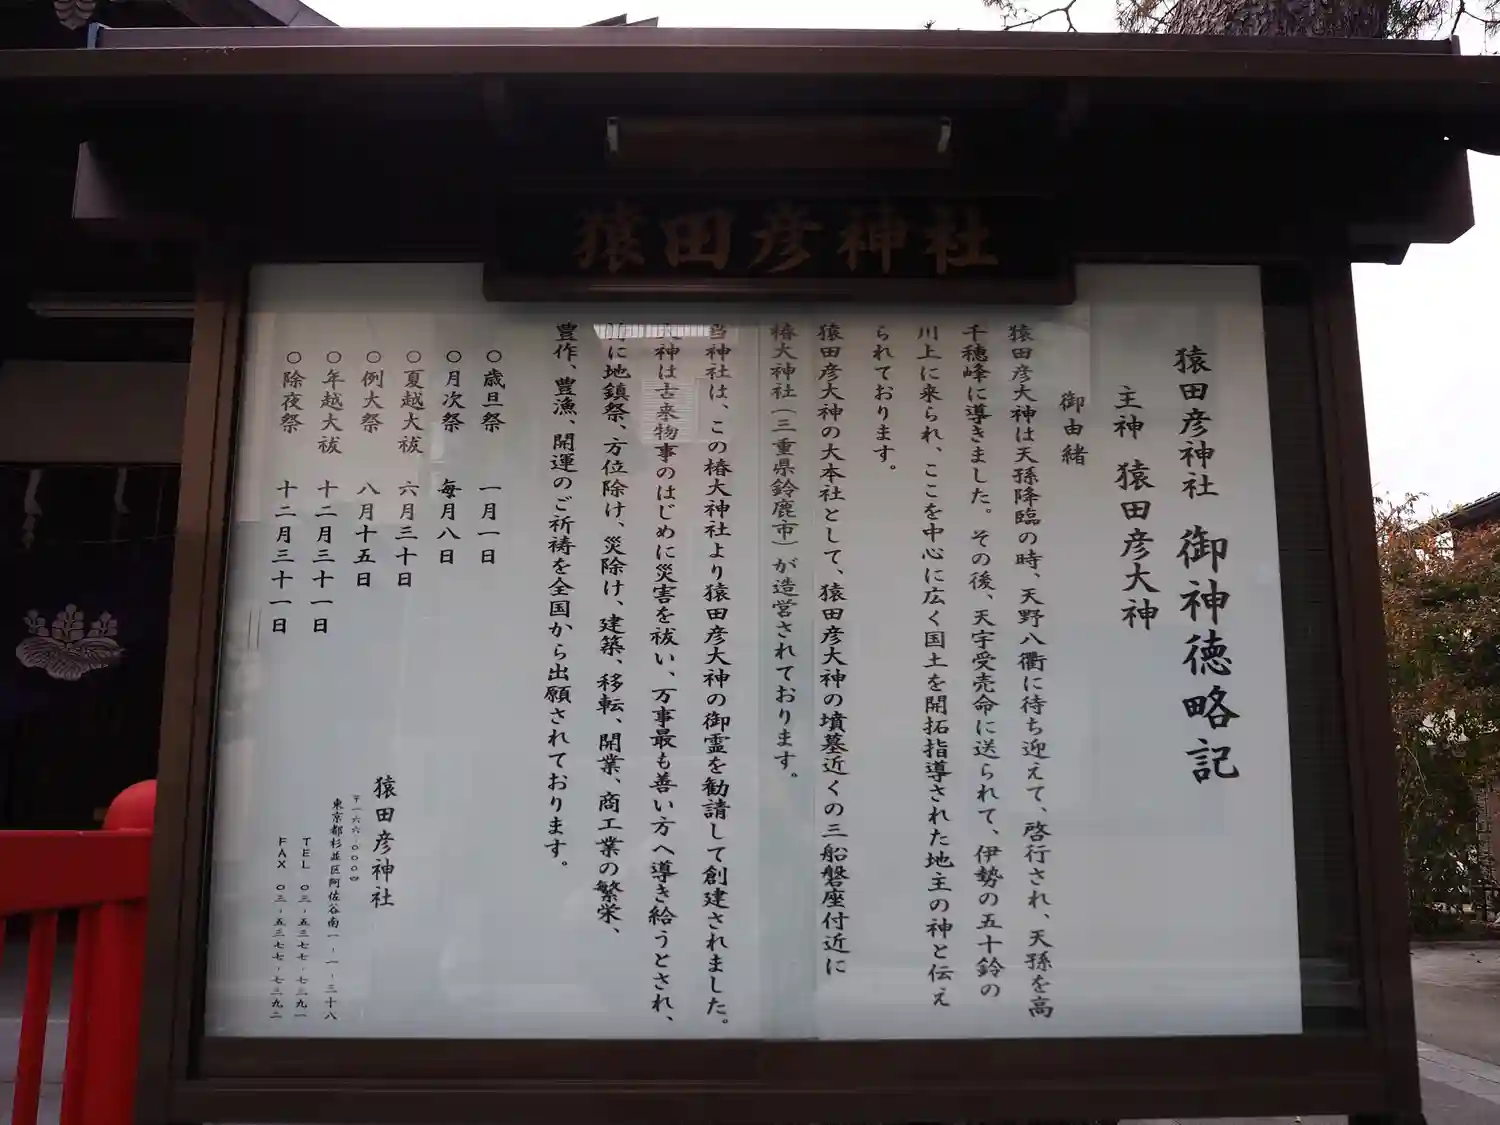 猿田彦神社
猿田彦神社　御神徳略記
主神　猿田彦大神
御由緒
猿田彦大神は天孫降臨の時、天野八衢に待ち迎えて、啓行され、天孫を高
千穂峰に導きました。その後、天宇受売命に送られて、伊勢の五十鈴の
川上に来られ、ここを中心に広く国土を開拓指導された地主の神と伝え
られております。
猿田彦大神の大本社として、猿田彦大神の墳墓近くの三船磐座付近に
椿大神社（三重県鈴鹿市）が造営されております。
当神社は、この椿大神社より猿田彦大神の御霊を勧請して創建されました。
神は古来物事のはじめに災害を祓い、万事最も善い方へ導き給うとされ、
に地鎮祭、方位除け、災除け、建築、移転、開業、商工業の繁栄、
豊作、豊漁、開運のご祈祷を全国から出願されております。
○歳旦祭　一月一日
○月次祭　毎月八日
○夏越大祓　六月三十日
○例大祭　八月十五日
○年越大祓　十二月三十一日
○除夜祭　十二月三十一日
猿田彦神社
〒一六六-〇〇〇四
東京都杉並区阿佐谷南一-一-三十八
TEL　〇三-五三七七-七三九一
FAX　〇三-五三七七-七三九二